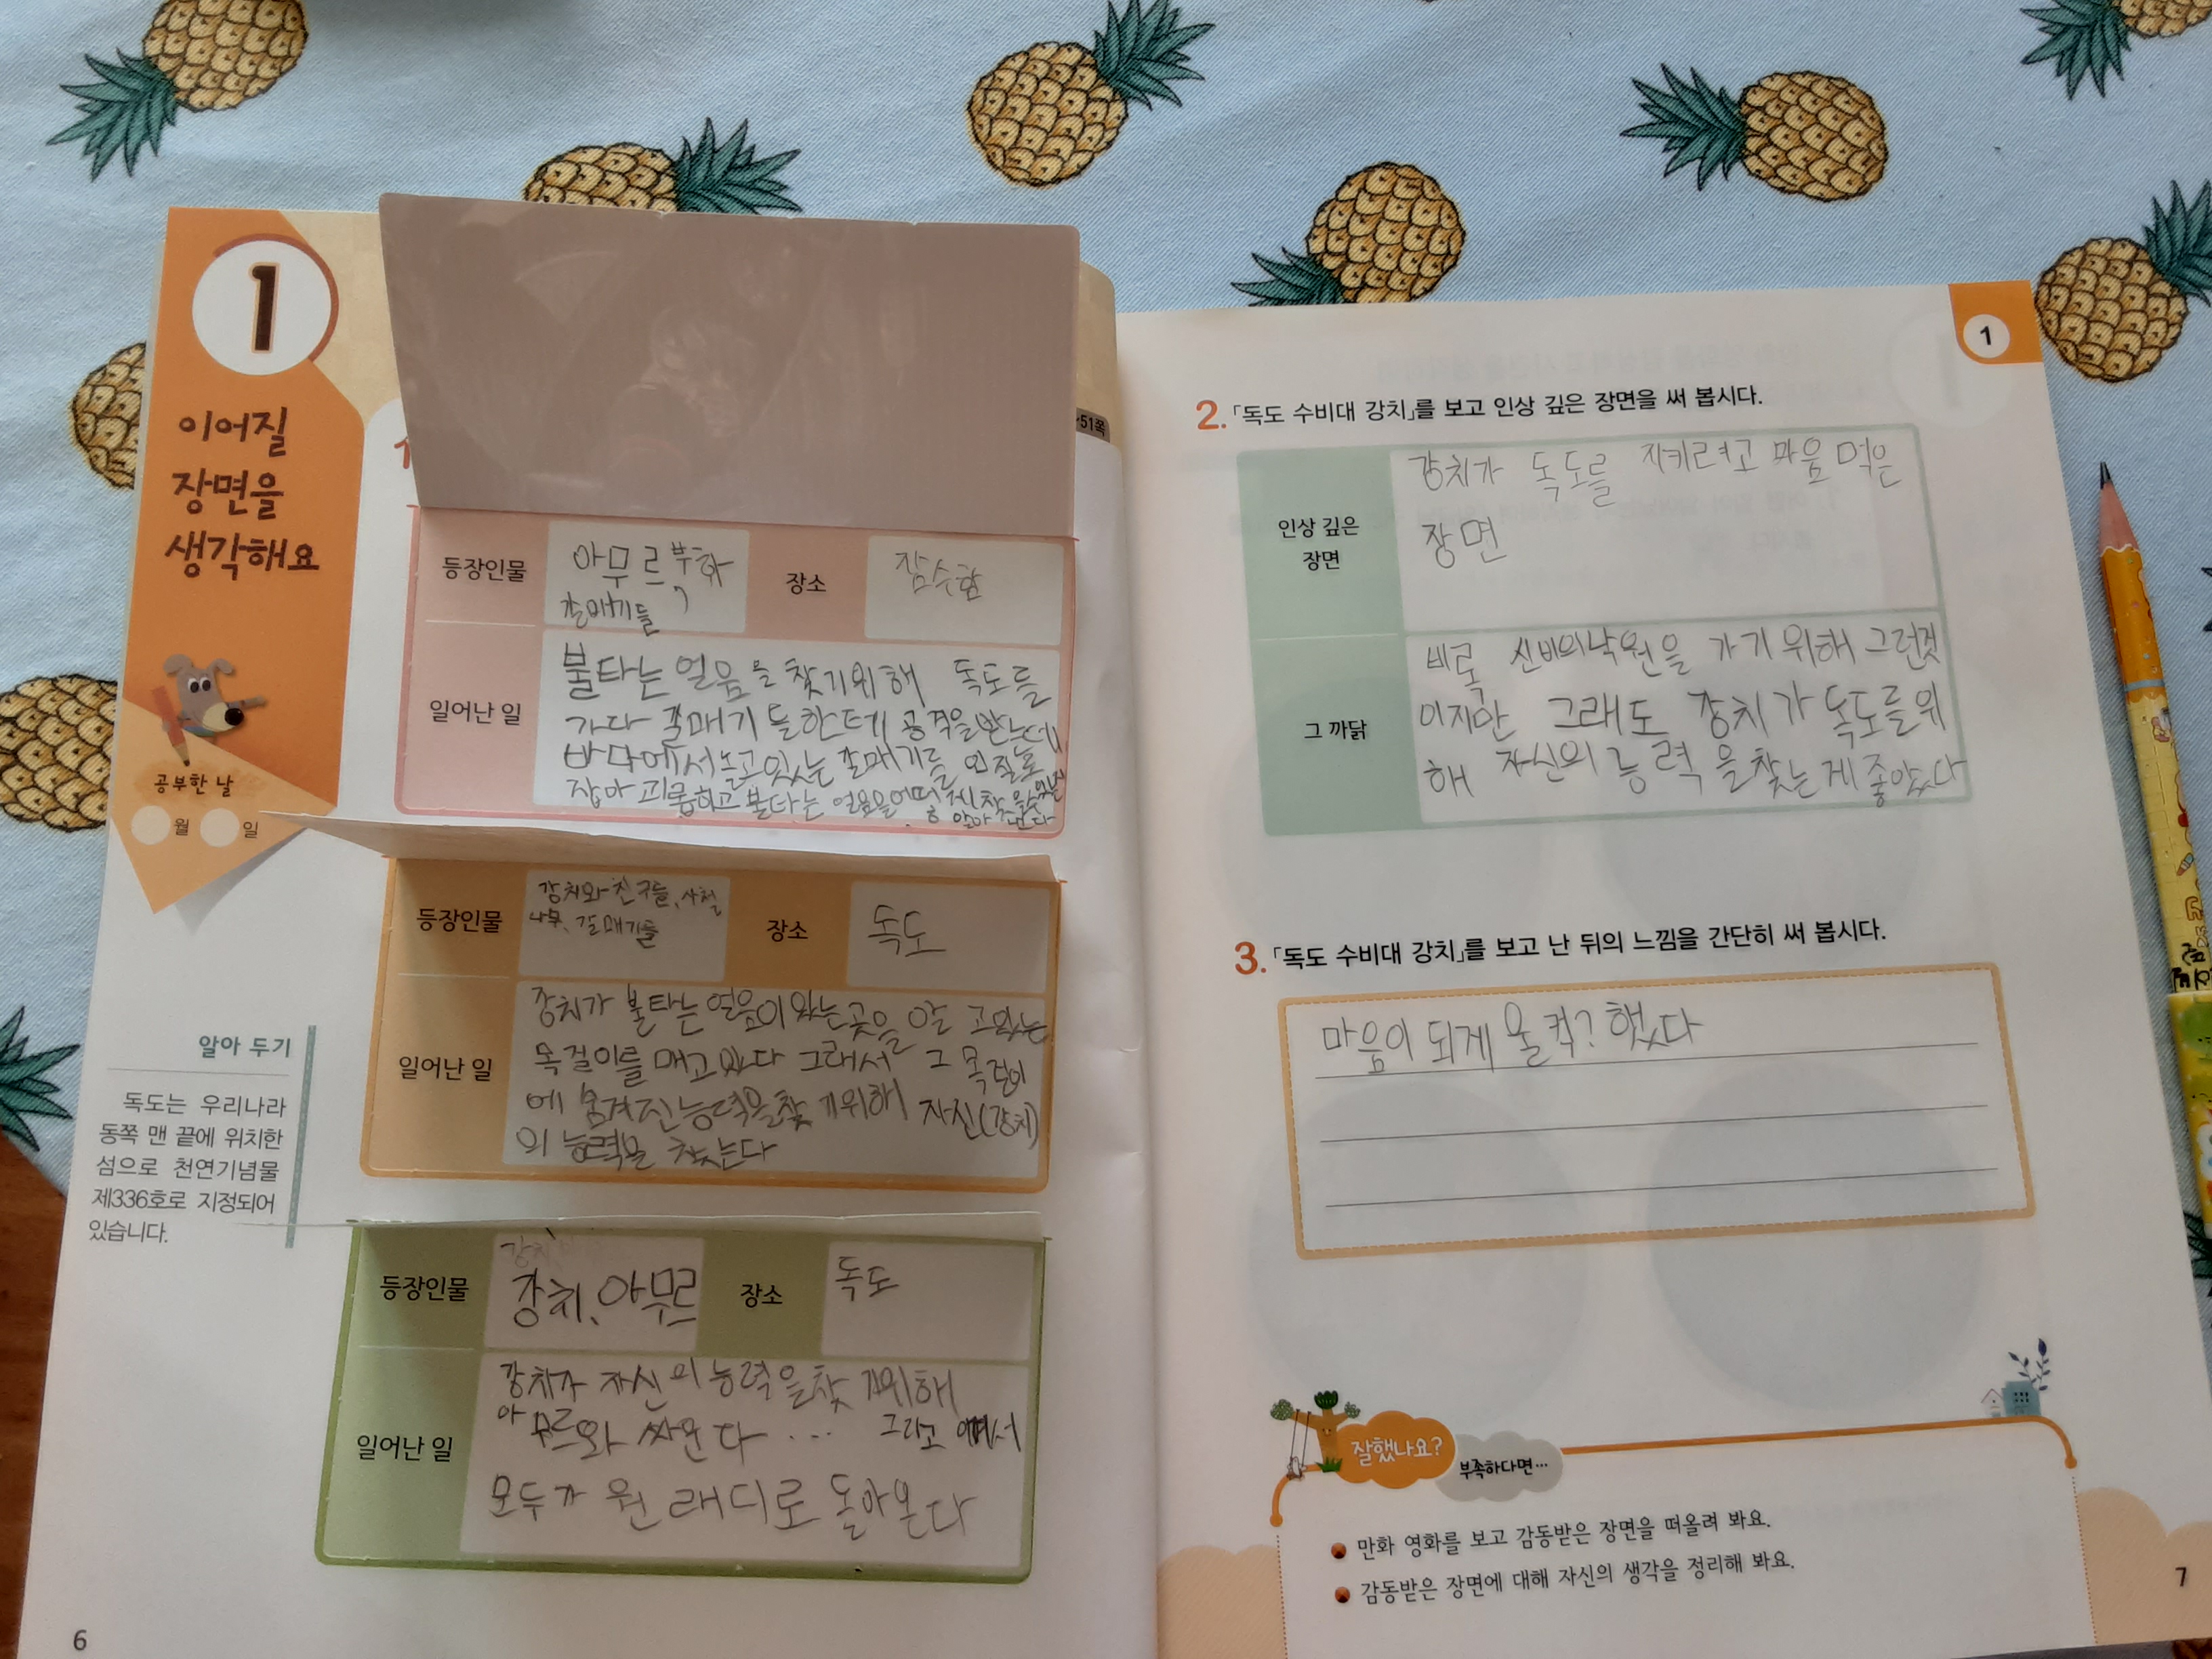 1
이어질
장면을
생각해요
공부한 날
월 일
알아 두기
독도는 우리나라
동쪽 맨 끝에 위치한
섬으로 천연기념물
제336호로 지정되어
있습니다.
51쪽
등장인물
아무르, 부하
갈매기들
장소
잠수함
일어난 일
불타는 얼음을 찾기위해 독도를
가다 갈매기 들한테 공격을받는데
바다에서 놀고있는 갈매기를 인질로
잡아 괴롭히고 불타는 얼음을
등장인물
강치와 친구들, 사철
나무, 갈매기들
장소
독도
일어난 일
강치가 불타는 얼음이 있는곳을 알고있는
목걸이를 매고 있다 그래서 그 목걸이
에 숨겨진능력을찾기위해 자신(강치)
의 능력을 찾는다
등장인물
강치, 아무르
장소
독도
일어난 일
강치가 자신의능력을찾기위해
아무르와 싸운다 ... 그리고
모두가 원래디로 돌아온다
6
1
2. 「독도 수비대 강치」를 보고 인상 깊은 장면을 써 봅시다.
인상 깊은
장면
강치가 독도를 지키려고 마음먹은
장면
그 까닭
비록 신비의낙원을 가기위해 그런것
이지만 그래도 강치가 독도를위
해 자신의능력을찾는게좋았다
3. 「독도 수비대 강치」를 보고 난 뒤의 느낌을 간단히 써 봅시다.
마음이 되게 울컥? 했다
잘했나요?
부족하다면…
만화 영화를 보고 감동받은 장면을 떠올려 봐요.
감동받은 장면에 대해 자신의 생각을 정리해 봐요.
7